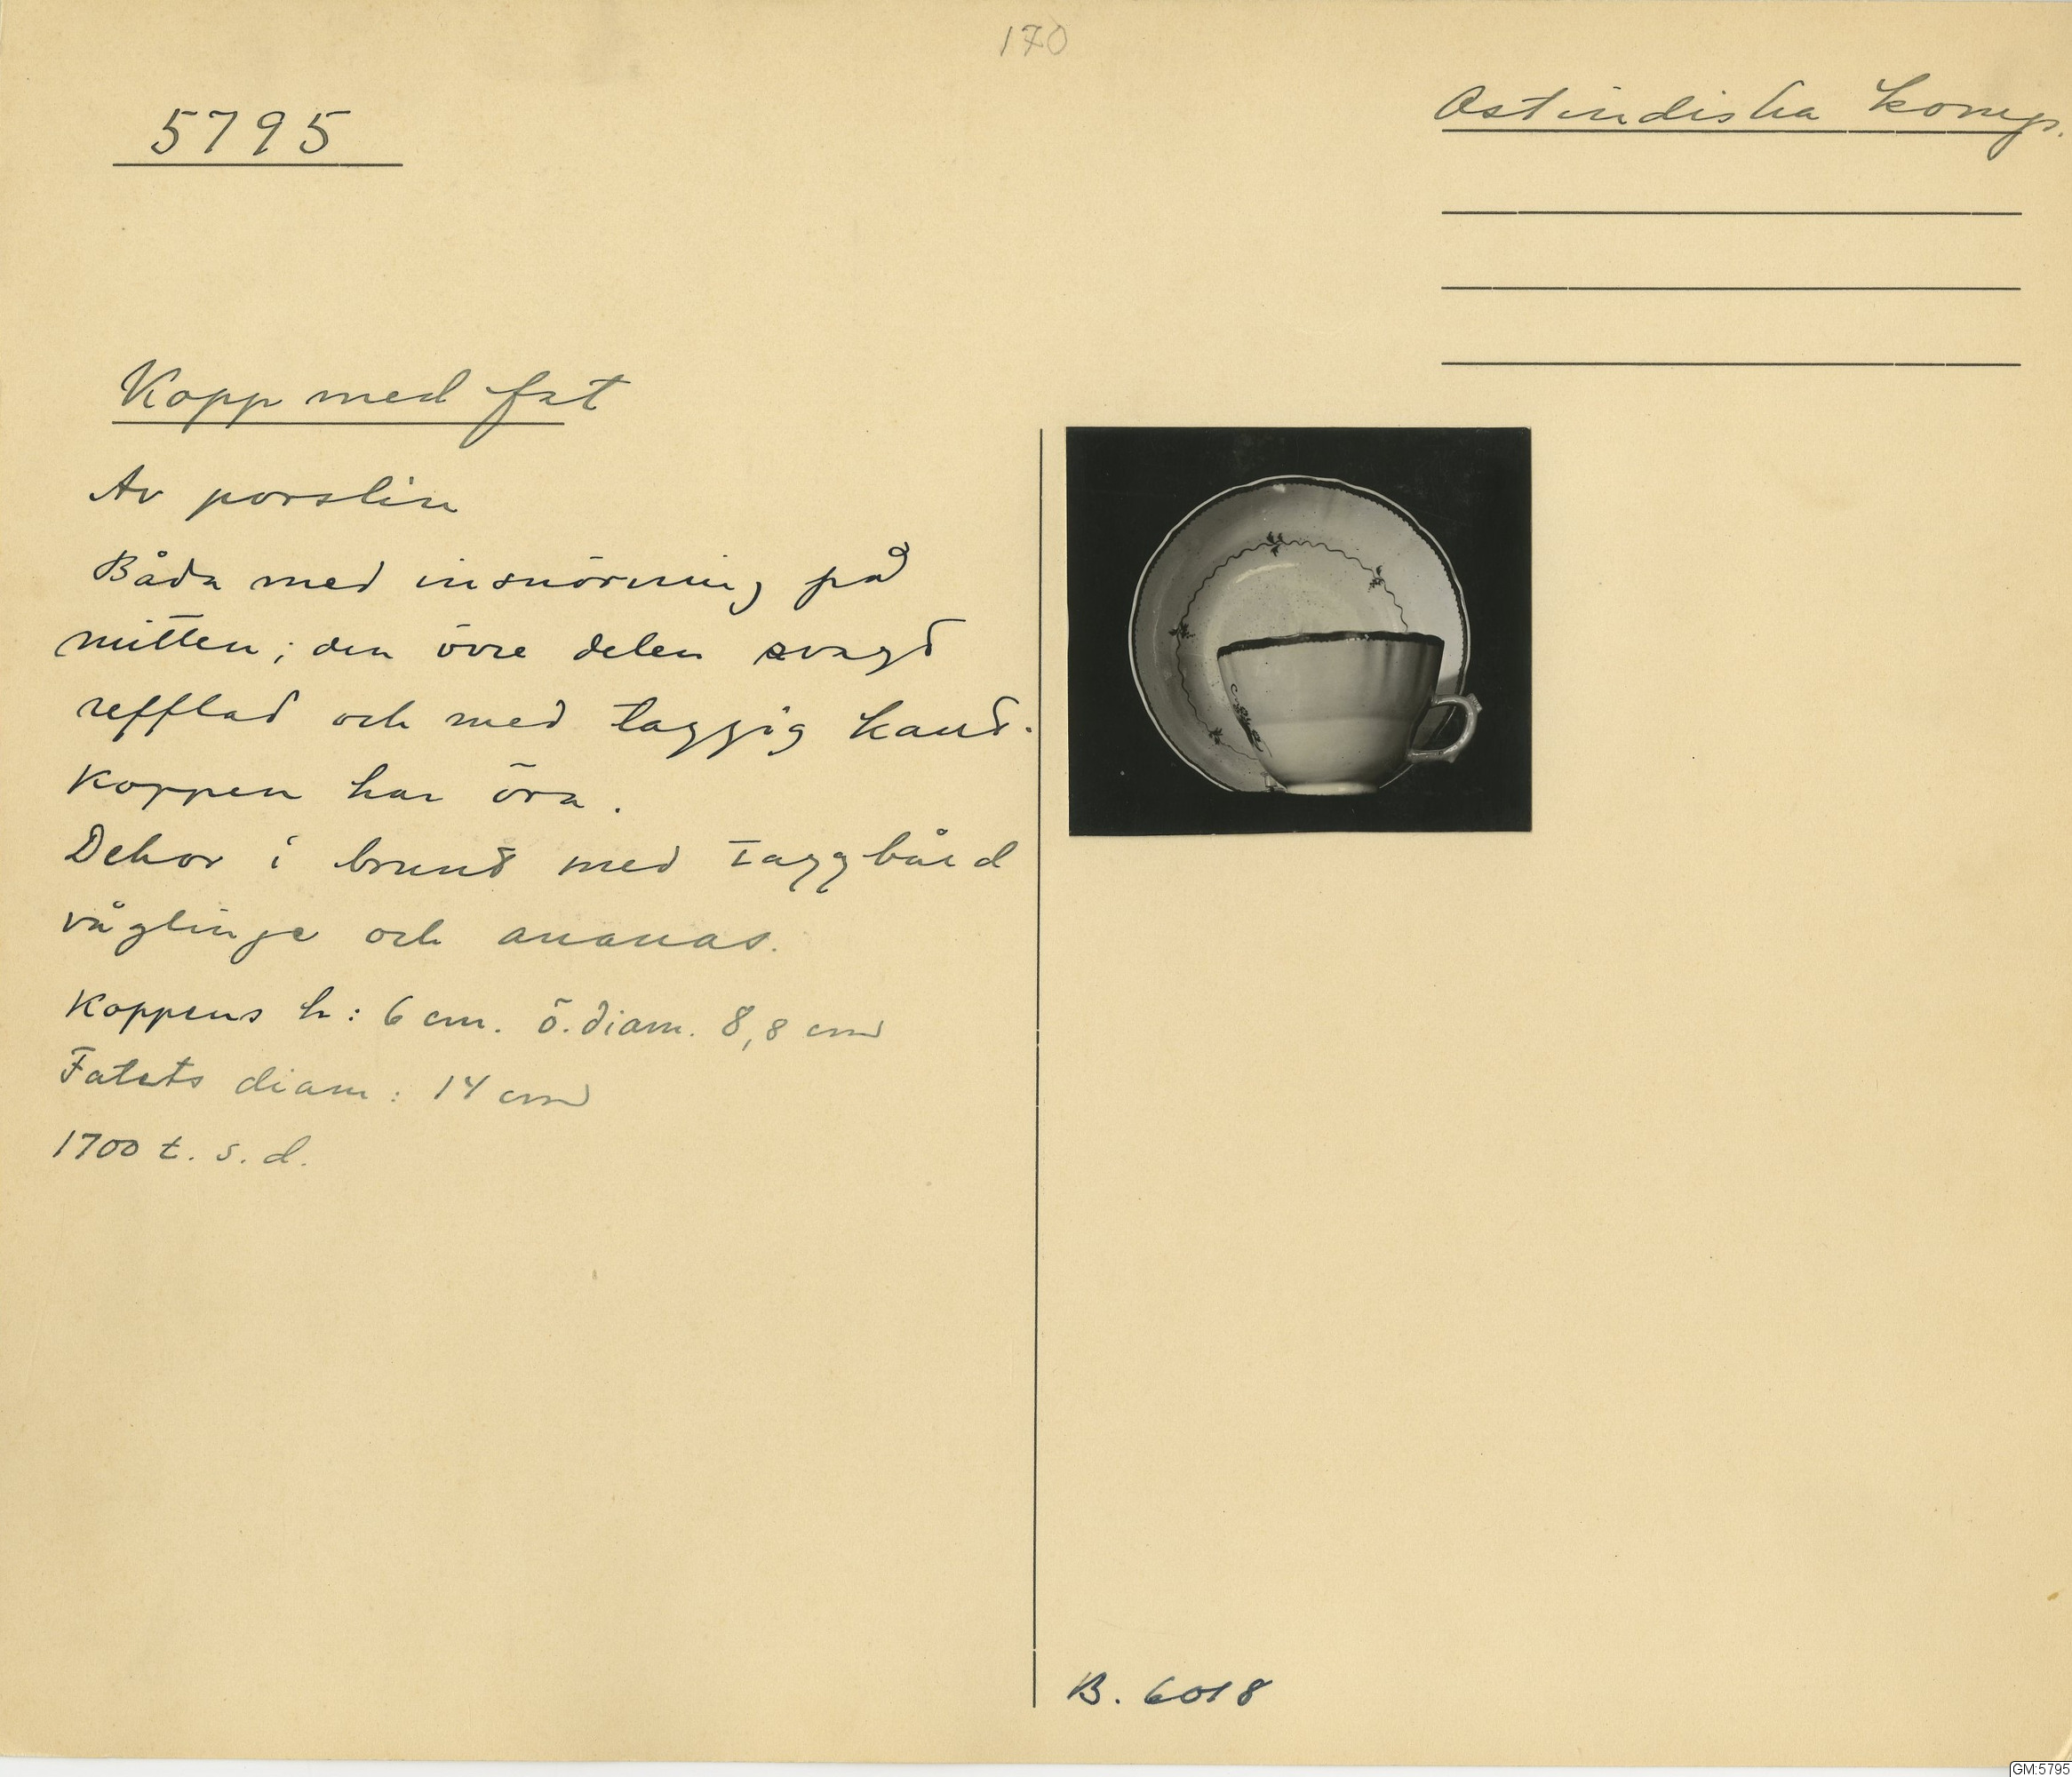 170
5795
Ostindiska komp.
Kopp med fat
Av porslin
Båda med insnörning på
mitten; den övre delen svagt
refflad och med taggig kant.
Koppen har öra.
Dekor i brunt med taggbård
våglinje och ananas.
Koppens h: 6 cm. ö.diam. 8,8 cm
Fatets diam: 14 cm
1700 t. s. d.
B. 6018
GM:5795